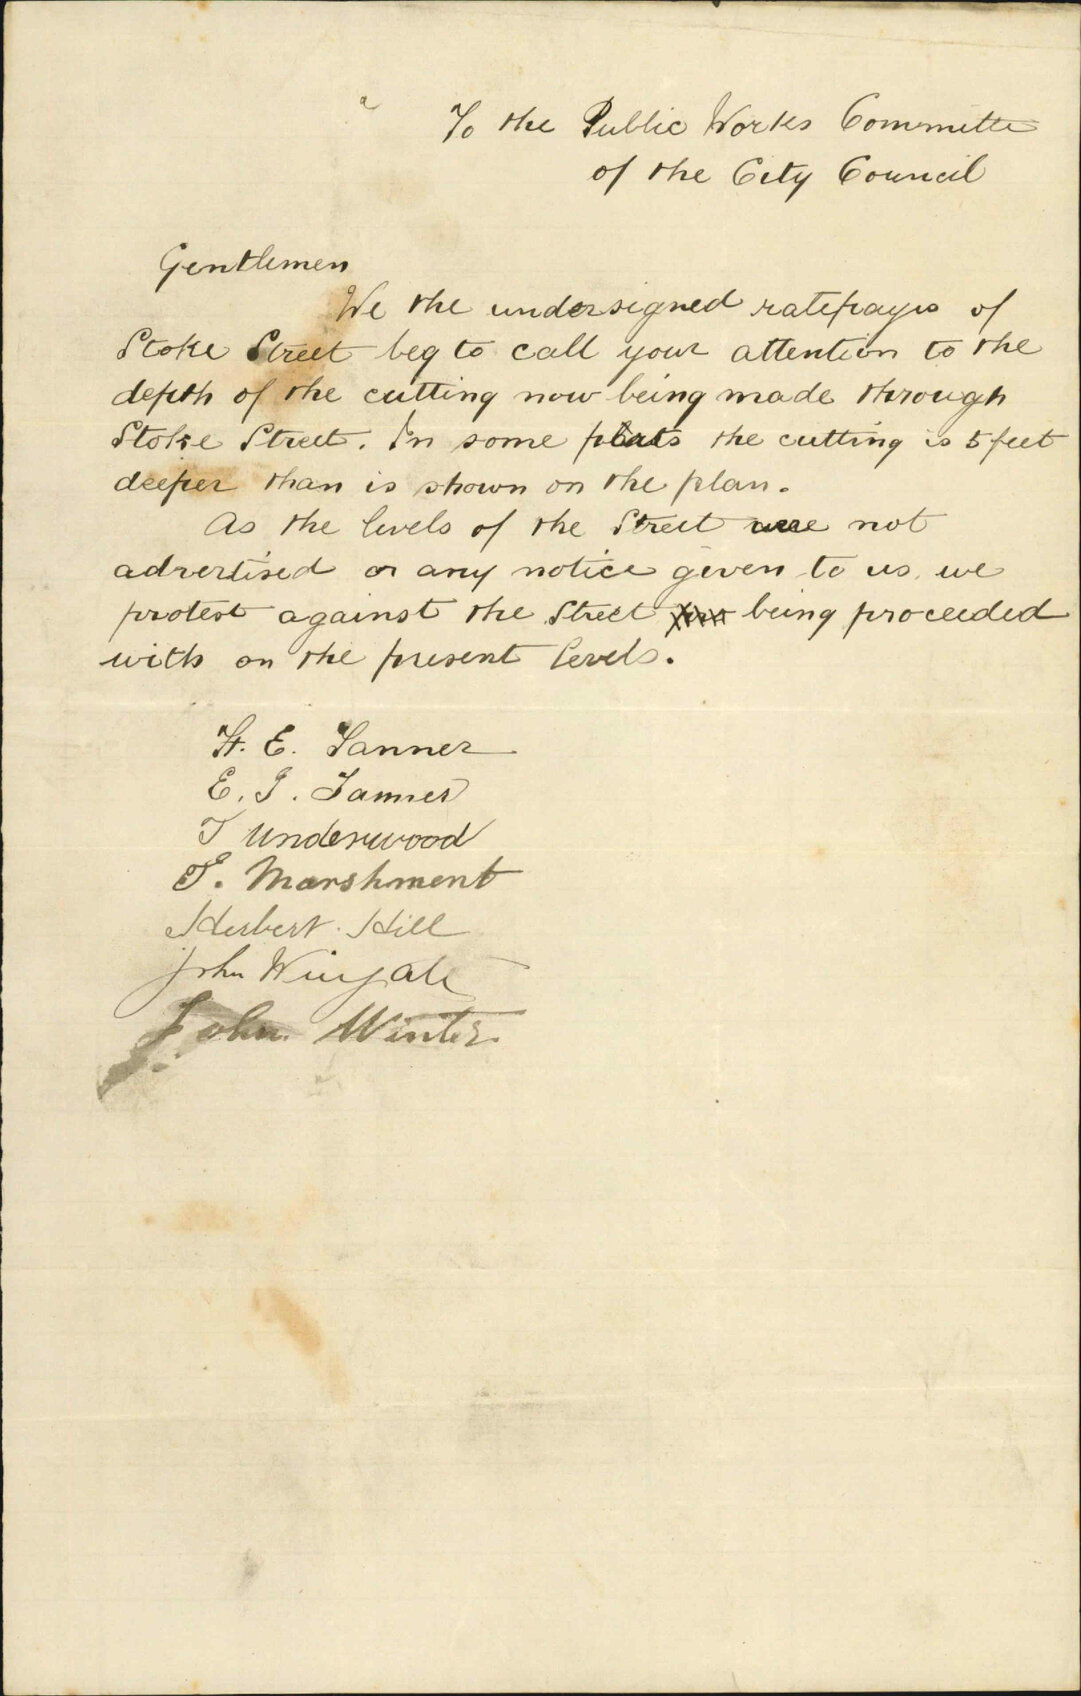 To the Public Works Committe
of the City Council
Gentlemen
We the undersigned ratepayrs of
Stoke Street beg to call your attention to the
depth of the cutting now being made through
Stoke Street. In some parts the cutting is 5 feet
deeper than is shown on the plan.
As the levels of the Street were not
advertised or any notice given to us, we
protest against the Street being proceeded
with on the present levels.
H. E. Tanner
E. J. Tanner
T Underwood
T. Marshment
Herbert. Hill
John Wingate
John Winter